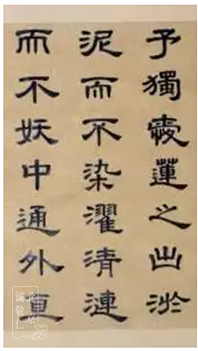 予獨愛蓮之出淤
泥而不染濯清漣
而不妖中通外直